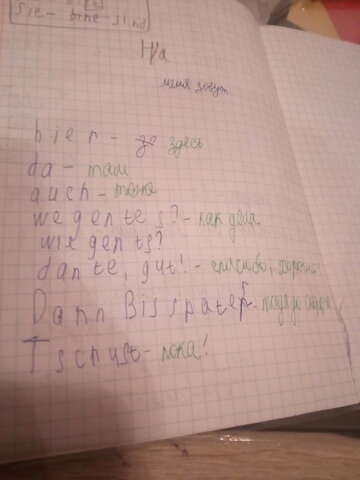 Sie - bine - sind
Н/а
меня зовут
hier - здесь
da - там
auch - тоже
we gen te s? - как дела
wie gen ts?
dan te, gut! - спасибо, хорошо
Dann Bis spater -
T sch ust - пока!